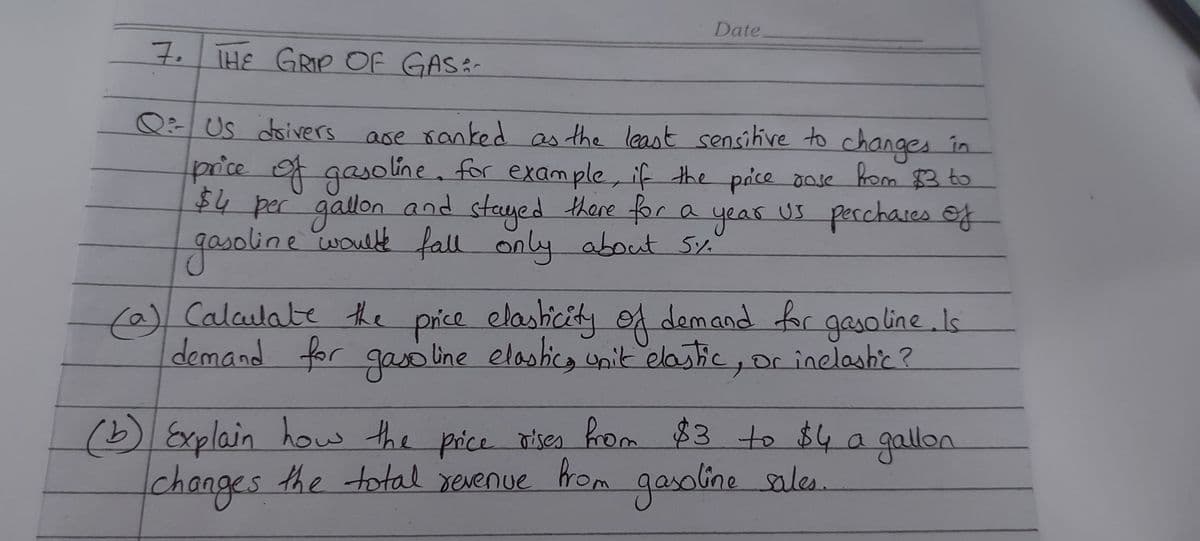 Date
7. THE GRIP OF GAS:-
Q:- US drivers are ranked as the least sensitive to changes in
price of gasoline. for example, if the price rose from $3 to
$4 per gallon and stayed there for a year US perchases of
gasoline would fall only about 5%.
(a) Calculate the price elasticity of demand for gasoline. Is
demand for gasoline elastic, unit elastic, or inelastic?
(b) Explain how the price rises from $3 to $4 a gallon
changes the total revenue from gasoline sales.